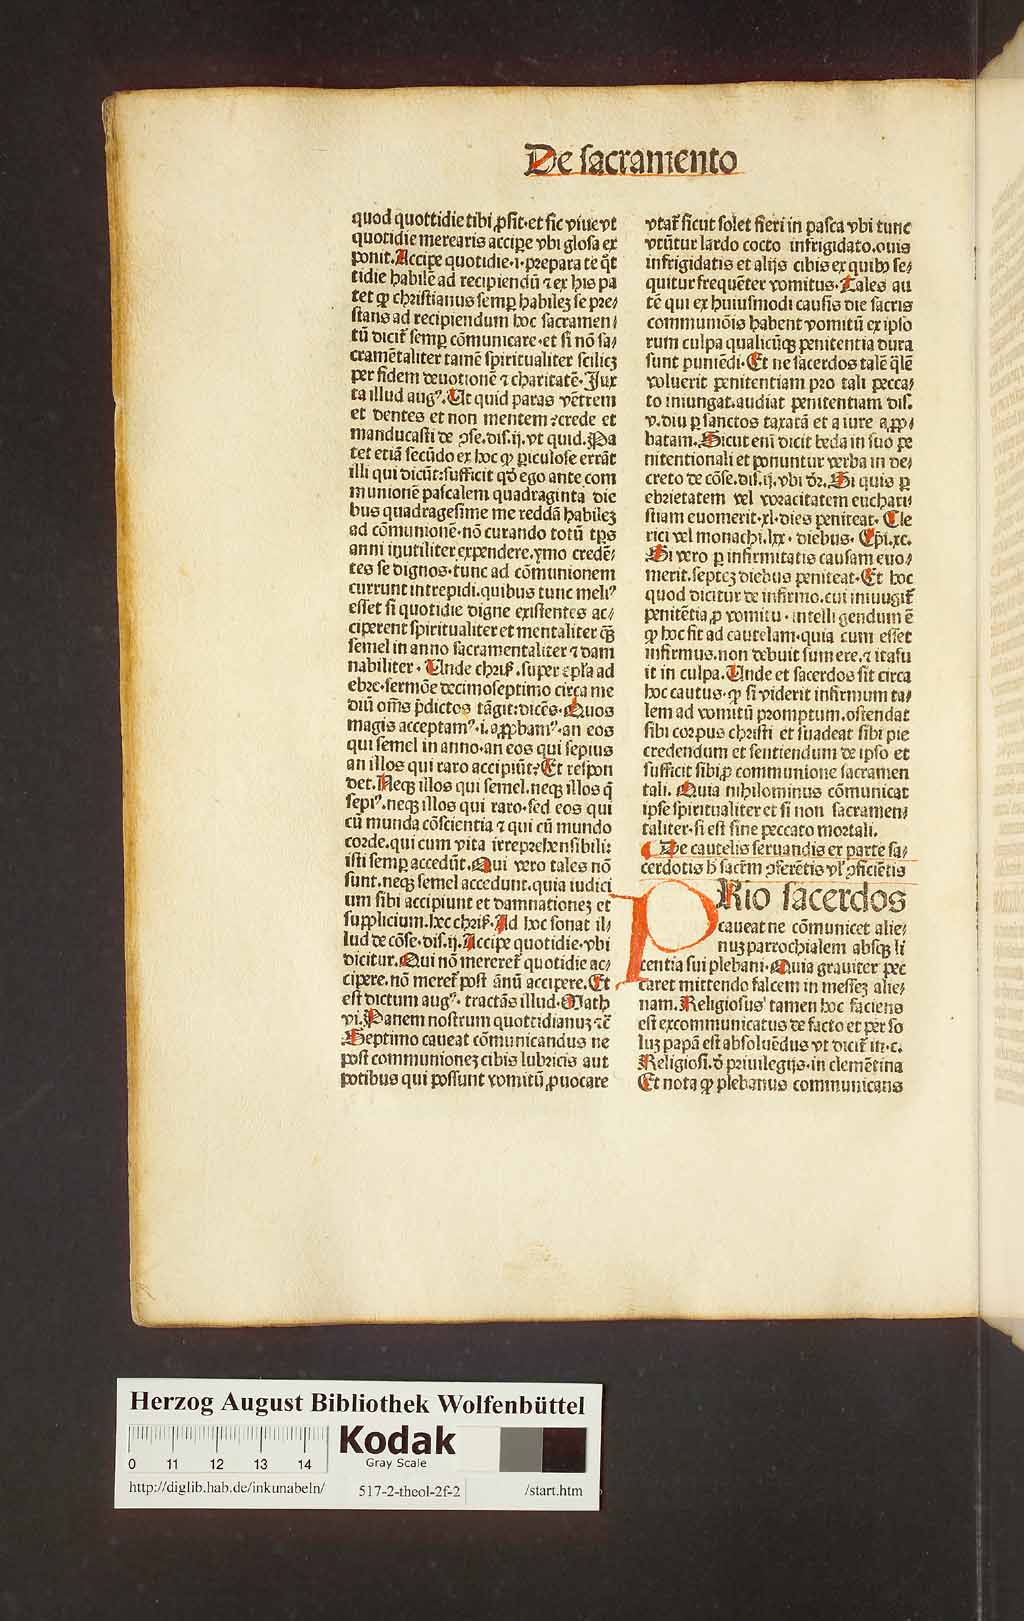 De sacramento
quod quottidie tibi ꝓsit·et sic viue vt
quotidie merearis accipe vbi glosa ex
ponit.Accipe quotidie·i·prepara te q̄t
tidie habilē ad recipiendū ⁊ ex his pa
tet ꝙ christianus semꝑ habilez se pre/
stans ad recipiendum hoc sacramen/
tū dicit᷑ semꝑ cōmunicare·et si nō sa/
cramētaliter tamē spiritualiter scilicꝫ
per fidem deuotionē ⁊ charitatē·Jux
ta illud augꝰ.Ut quid paras ventrem
et dentes et non mentem:crede et
manducasti de ꝯse.dis.ij.vt quid.Pa
tet etiā secūdo ex hoc ꝙ ꝑiculose errāt
illi qui dicūt:sufficit qd̄ ego ante com
munionē pascalem quadraginta die
bus quadragesime me reddā habileꝫ
ad cōmunionē·nō curando totū tp̄s
anni inutiliter expendere.ymo credē/
tes se dignos·tunc ad cōmunionem
currunt intrepidi.quibus tunc meliꝰ
esset si quotidie digne existentes ac/
ciperent spiritualiter et mentaliter qͣꝫ
semel in anno sacramentaliter ⁊ dam
nabiliter·Unde chriſ.super epl̄a ad
ebre·sermōe decimoseptimo circa me
diū om̄s p̄dictos tāgit:dicēs·Quos
magis acceptamꝰ·i.aꝓbamꝰ·an eos
qui semel in anno·an eos qui sepius
an illos qui raro accipiūt:Et respon
det.Neqꝫ illos qui semel.neqꝫ illos q̄
sepiꝰ.neqꝫ illos qui raro·sed eos qui
cū munda cōscientia ⁊ qui cū mundo
corde.qui cum vita irreprehensibili:
isti semꝑ accedūt.Qui vero tales nō
sunt.neqꝫ semel accedunt.quia iudici
um sibi accipiunt et damnationeꝫ et
supplicium.hec chriſ·Ad hoc sonat il/
lud de cōse·dis.ij.Accipe quotidie·vbi
dicitur.Qui nō mereret᷑ quotidie ac/
cipere.nō meret᷑ post ānū accipere.Et
est dictum augꝰ·tractās illud·Math
vi.Panem nostrum quottidianuꝫ ⁊c̄
Septimo caueat cōmunicandus ne
post communioneꝫ cibis lubricis aut
potibus qui possunt vomitū ꝓuocare
vtat᷑ sicut solet fieri in pasca vbi tunc
vtūtur lardo cocto infrigidato.ouis
infrigidatis et alijs cibis ex quibꝰ se/
quitur frequēter vomitus·Tales au
tē qui ex huiusmodi causis die sacris
communiōis habent vomitū ex ipso
rum culpa qualicūqꝫ penitentia dura
sunt puniēdi·Et ne sacerdos talē q̄lē
voluerit penitentiam pro tali pecca/
to iniungat.audiat penitentiam dis.
v.diu ꝑ sanctos taxatā et a iure aꝓ/
batam.Sicut enī dicit beda in suo pe
nitentionali et ponuntur verba in de/
creto de cōse.dis.ij.vbi dr̄.Si quis ꝑ
ebrietatem vel voracitatem euchari/
stiam euomerit·xl·dies peniteat·Cle
rici vel monachi.lxx·diebus·Ep̄i.xc.
Si vero ꝑ infirmitatis causam euo/
merit.septeꝫ diebus peniteat·Et hoc
quod dicitur de infirmo.cui iniungit᷑
penitētia ꝓ vomitu·intelligendum ē
ꝙ hoc fit ad cautelam·quia cum esset
infirmus.non debuit sumere.⁊ ita fu
it in culpa.Unde et sacerdos sit circa
hoc cautus·ꝙ si viderit infirmum ta/
lem ad vomitū promptum.ostendat
sibi corpus christi et suadeat sibi pie
credendum et sentiendum de ipso et
sufficit sibi ꝓ communione sacramen
tali.Quia nihilominus cōmunicat
ipse spiritualiter et si non sacramen/
taliter·si est sine peccato mortali.
De cautelis seruandis ex parte sa/
cerdotis h̄ sacr̄m ꝯferētis vl̓ ꝯficiētis
PRio sacerdos
caueat ne cōmunicet alie/
nuꝫ parrochialem absqꝫ li
centia sui plebani·Quia grauiter pec
caret mittendo falcem in messeꝫ alie/
nam.Religiosus tamen hoc faciens
est excommunicatus de facto et per so
luꝫ papā est absoluēdus vt dicit᷑ in·c.
Religiosi.d̄ priuilegijs·in clemētina
Et nota ꝙ plebanus communicans
Herzog August Bibliothek Wolfenbüttel
0 11 12 13 14
Kodak
Gray Scale
http://diglib.hab.de/inkunabeln/ 517-2-theol-2f-2 /start.htm